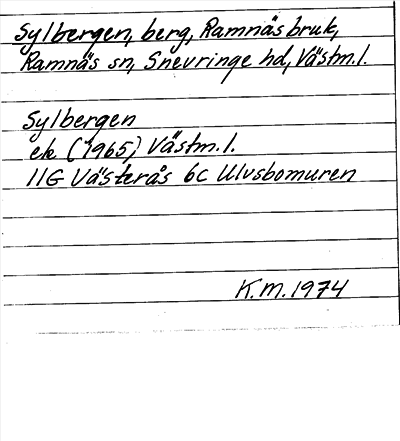 Sylbergen, berg, Ramnäs bruk,
Ramnäs sn, Snevringe hd, Västm.l.
Sylbergen
ek (1965) Västm.l.
11G Västerås 6c Ulvsbomuren
K.M. 1974